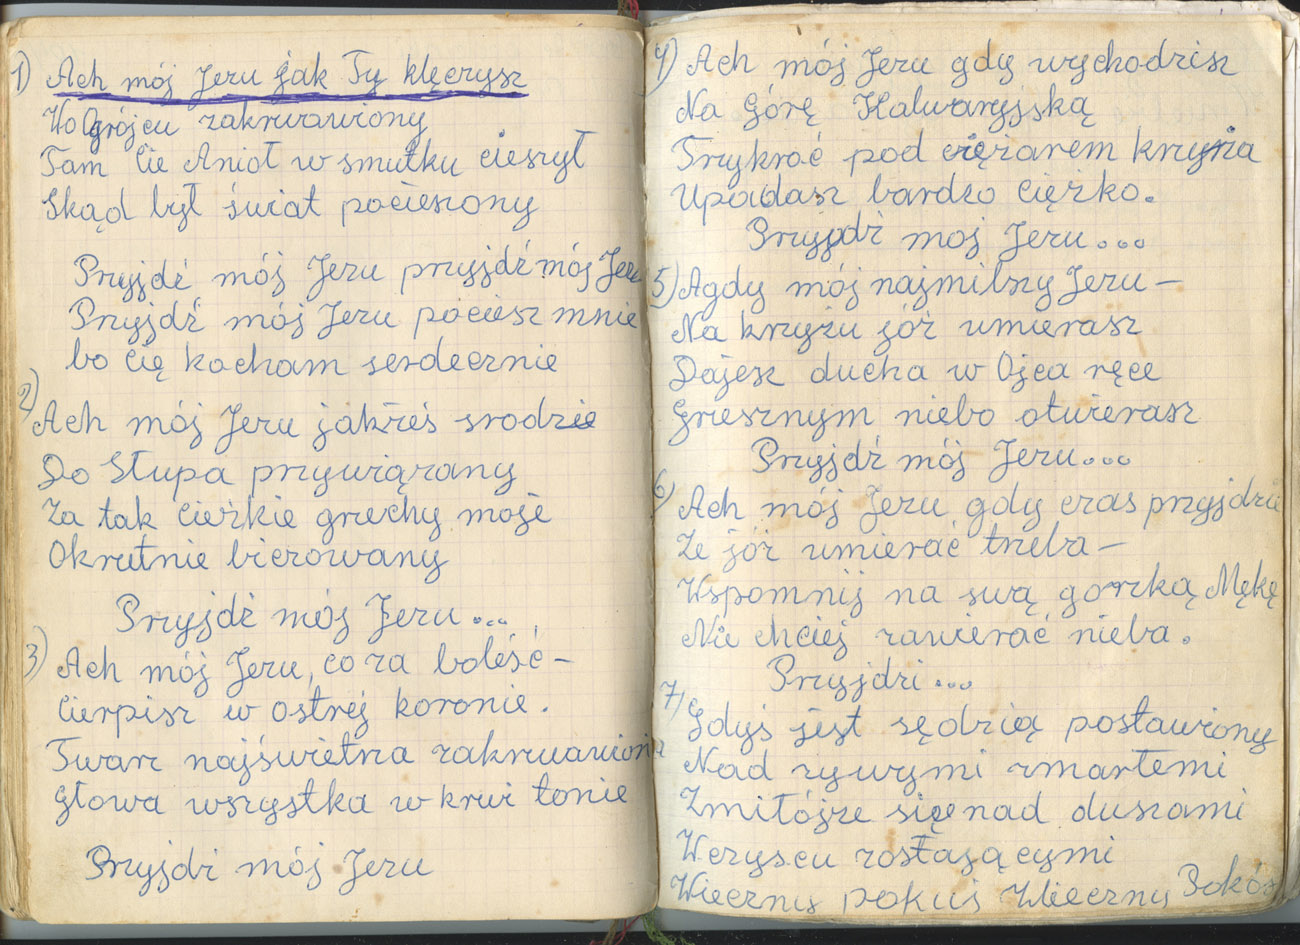 1) Ach mój Jezu jak Ty klęczysz
W Ogrójcu zakrwawiony
Tam Cie Anioł w smutku cieszył
Skąd był świat pocieszony
Przyjdź mój Jezu przyjdź mój Jezu
Przyjdź mój Jezu pociesz mnie
bo Cię kocham serdecznie
2) Ach mój Jezu jakżeś srodzie
Do Słupa przywiązany
Za tak Cieżkie grzechy moje
Okrutnie biczowany
Przyjdź mój Jezu...
3) Ach mój Jezu, co za boleść –
Cierpisz w ostrej koronie.
Twarz najświetrza zakrwawiona
Głowa wszystka w krwi tonie
Przyjdź mój Jezu
4) Ach mój Jezu gdy wychodzisz
Na Górę Kalwaryjską
Trzykroć pod ciężarem krzyża
Upadasz bardzo Ciężko.
Przyjdź moj Jezu...
5) Agdy mój najmilszy Jezu –
Na krzyżu jóż umierasz
Dajesz ducha w Ojca ręce
Gresznym niebo otwierasz
Przyjdź mój Jezu...
6) Ach mój Jezu gdy czas przyjdzie
Że jóż umierać trzeba –
Wspomnij na swą gorzką Mękę
Nie chciej zawierać nieba.
Przyjdzi...
7) Gdyś jest sędzią postawiony
Nad zywymi zmarłemi
Zmiłójże się nad duszami
W czyscu zostającymi
Wieczny pokuj Wieczny Pokój